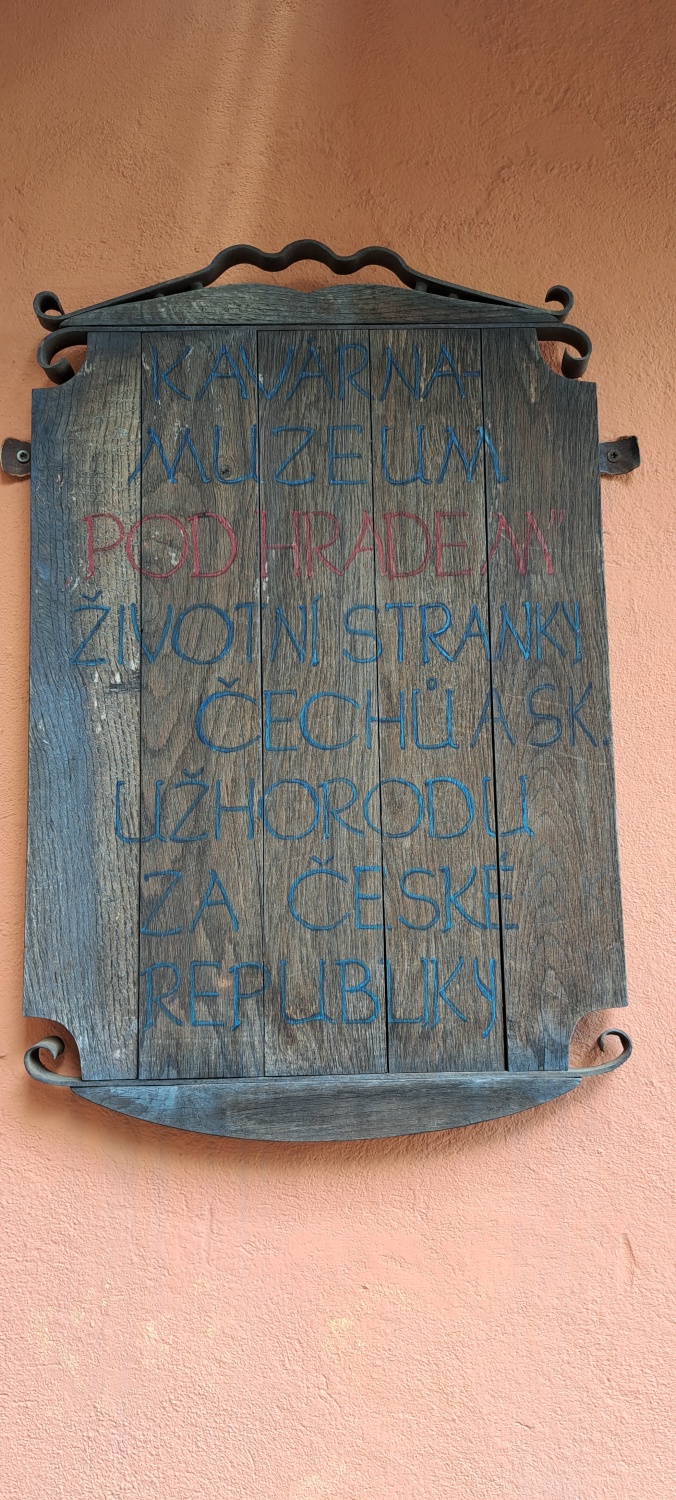 KAVÁRNA-
MUZEUM
„POD HRADEM"
ŽIVOTNÍ STRANKY
ČECHŮ A SK.
UŽHORODU
ZA ČESKÉ
REPUBLIKY